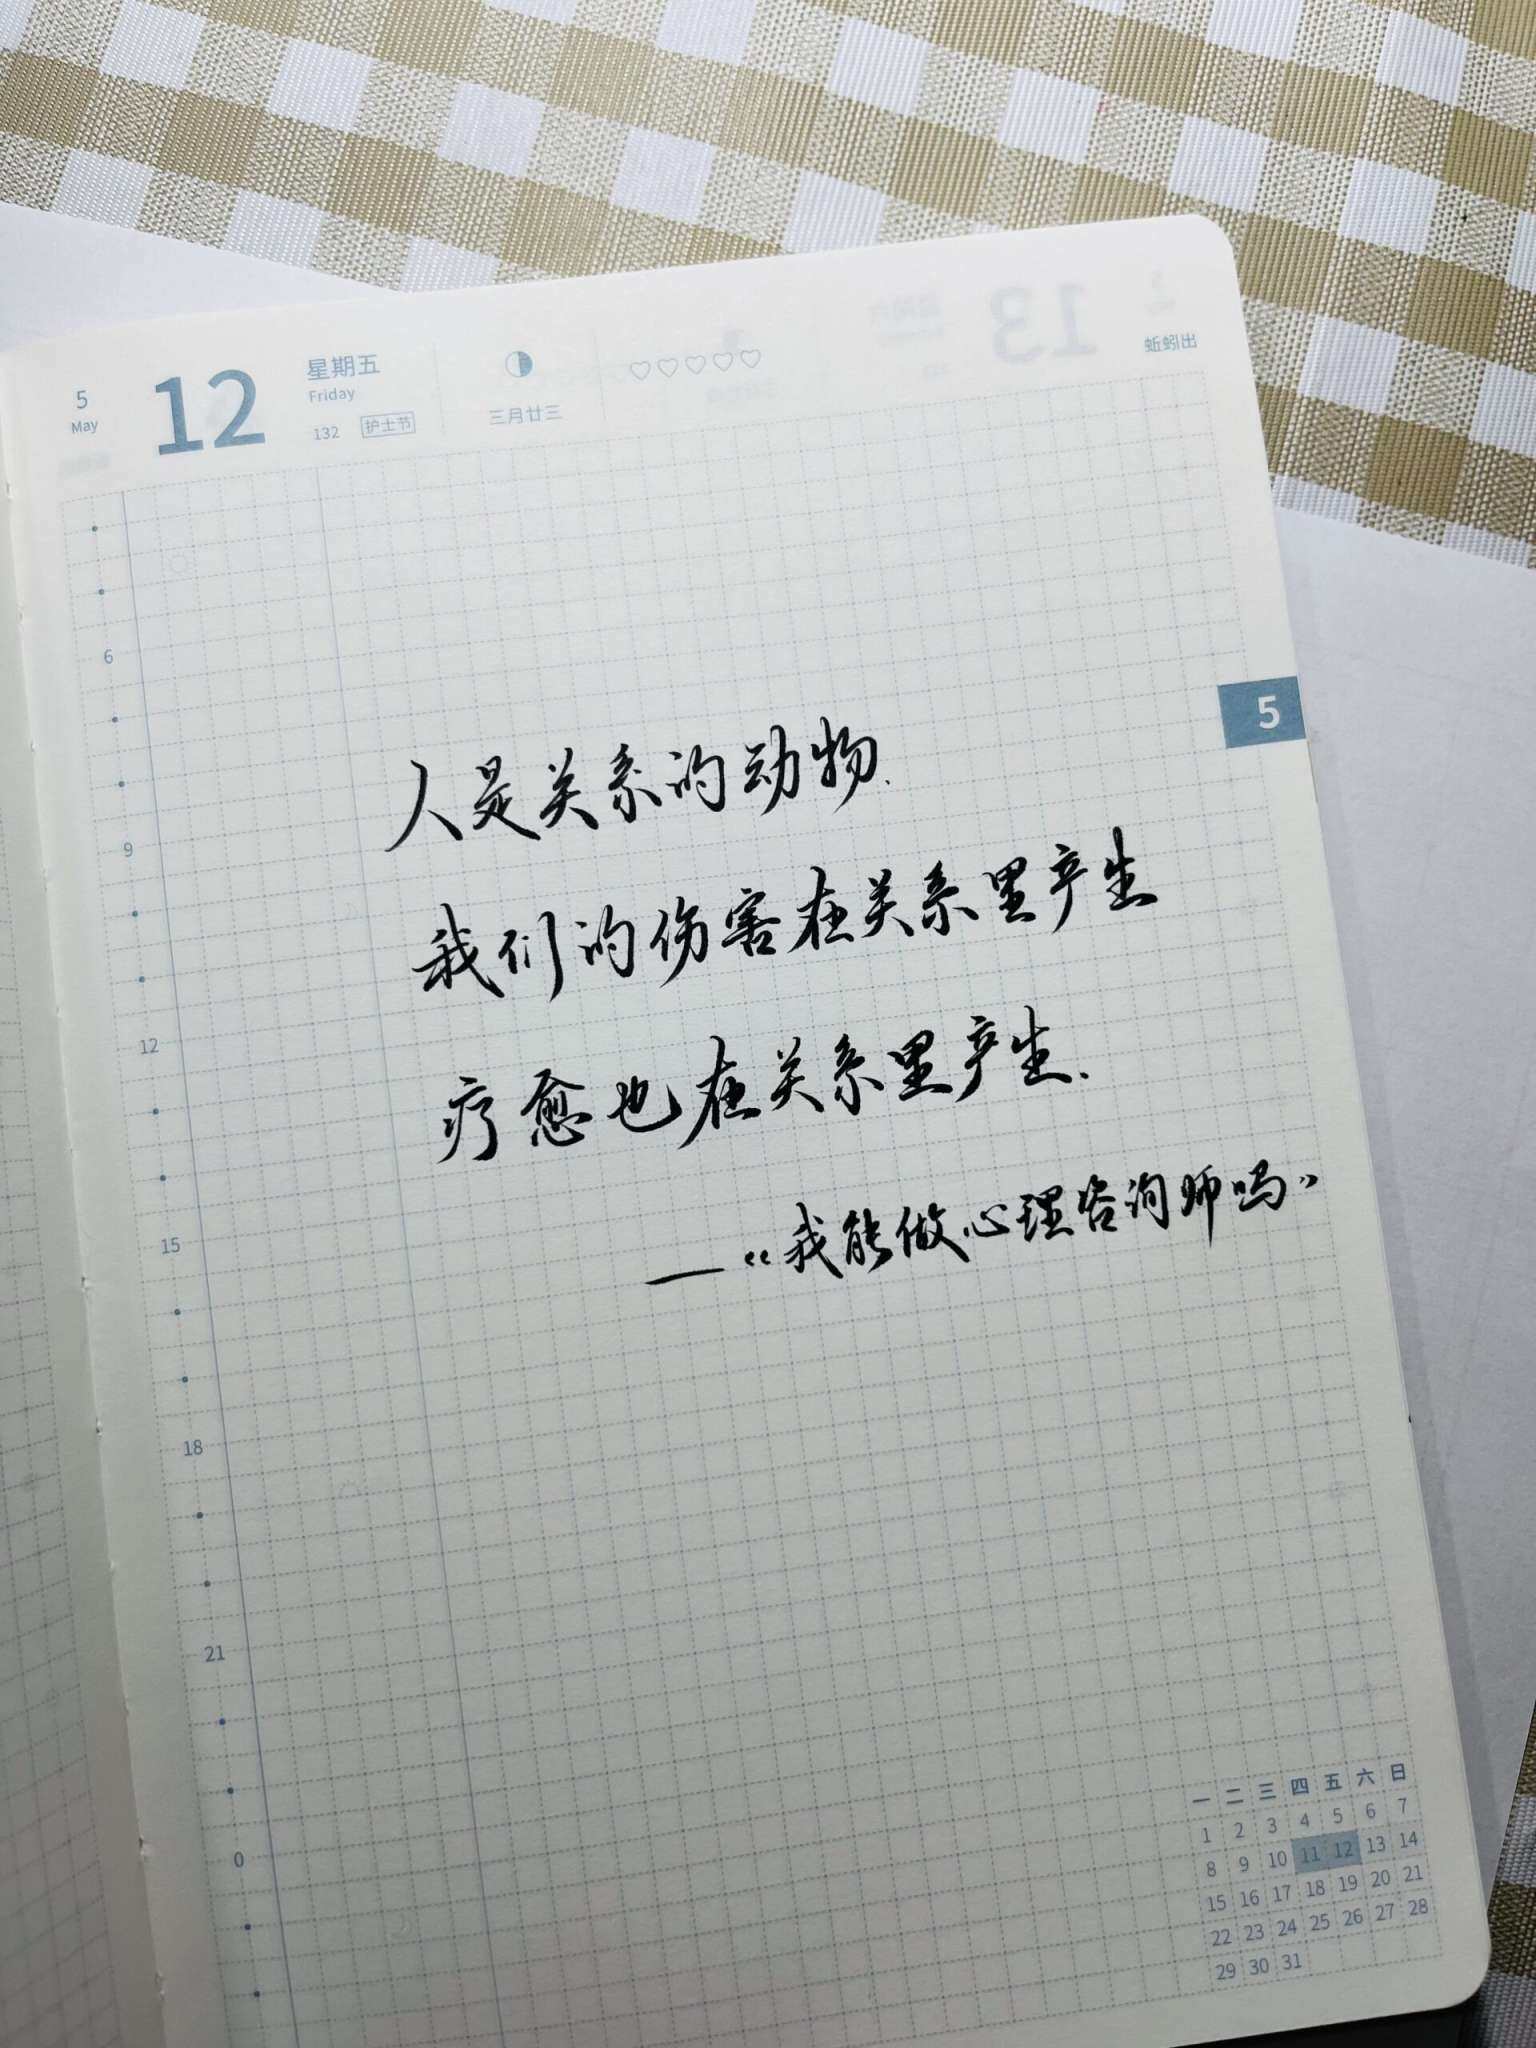 5
May
12
星期五
Friday
132 护士节
三月廿三
蚯蚓出
5
人是关系的动物.
我们的伤害在关系里产生
疗愈也在关系里产生.
——《我能做心理咨询师吗》
6
9
12
15
18
21
0
一 二 三 四 五 六 日
1 2 3 4 5 6 7
8 9 10 11 12 13 14
15 16 17 18 19 20 21
22 23 24 25 26 27 28
29 30 31